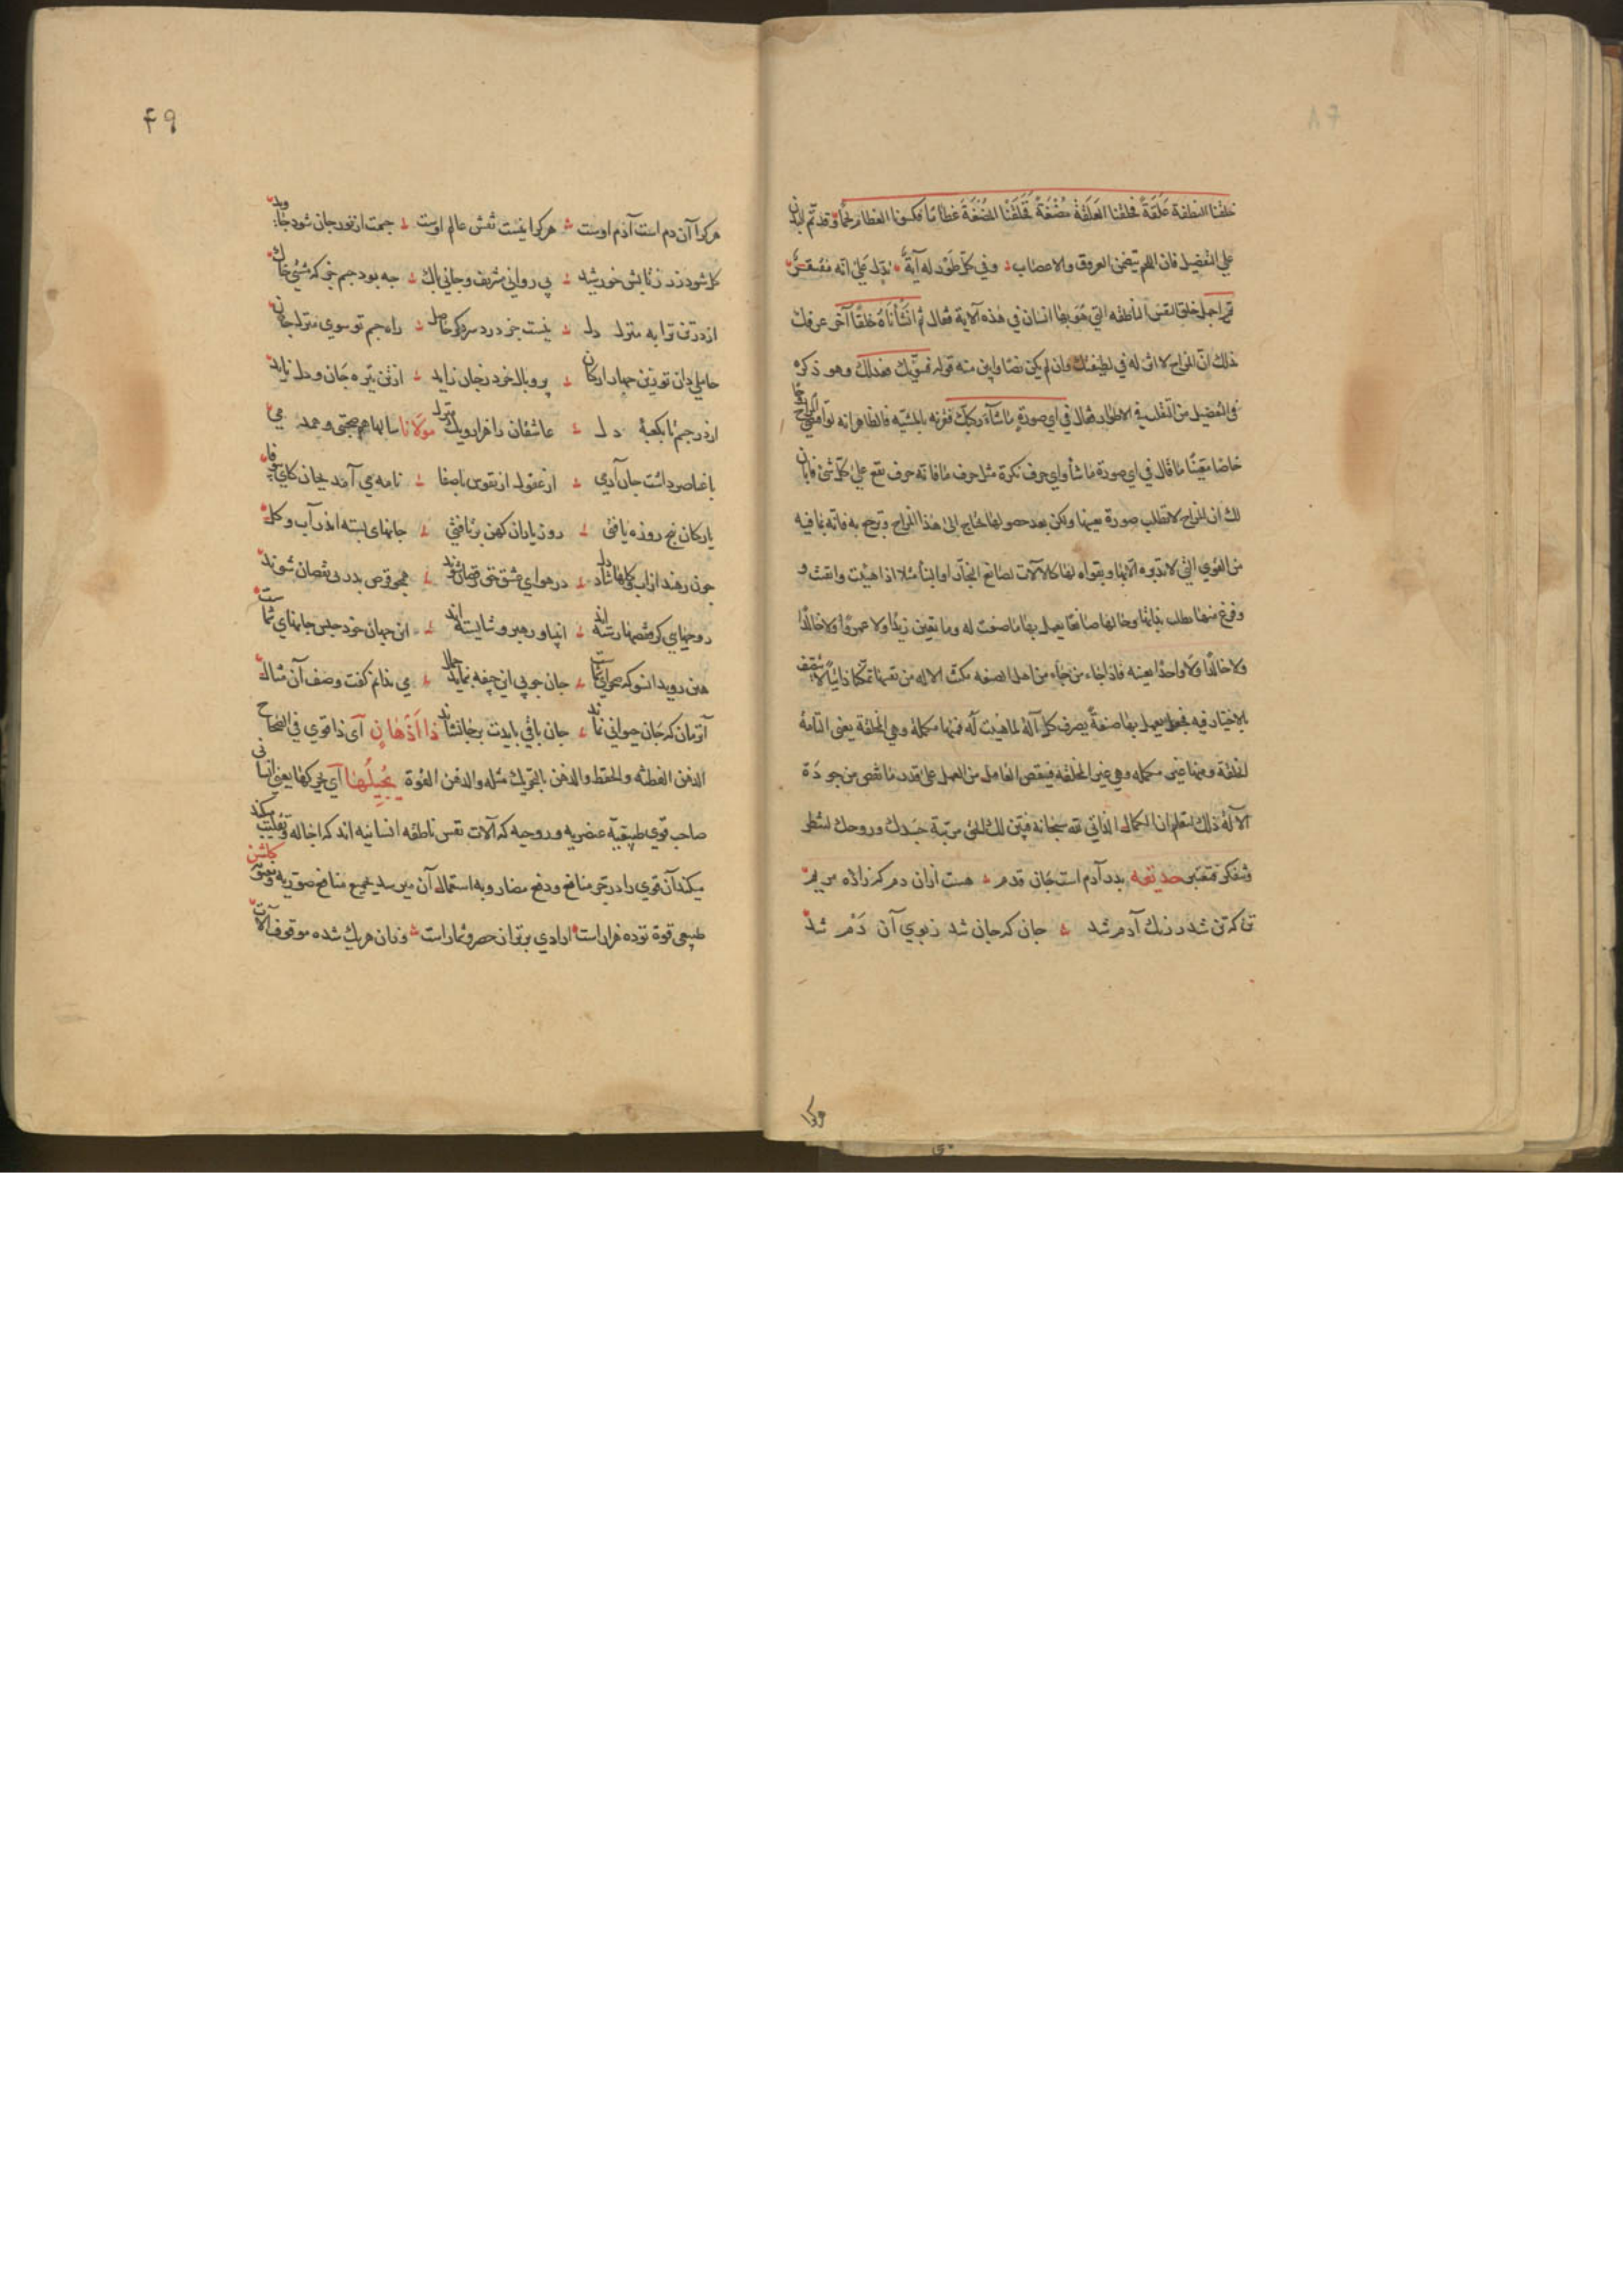 خلقنا النطفة علقة فخلقنا العلقة مضغة فخلقنا المضغة عظاما فكسونا العظام لحما وقد تم البدن
علي التفضيل فان اللحم يتضمن العروق والاعصاب وفي كل طور له آية تدل علي انه مفتقر
ثم اجمل خلق النفس الناطقه التي هو بها انسان في هذه الآية فقال ثم انشأناه خلقا آخر عرفك
ذلك ان المزاج لا اثر له في لطيفتك وان لم يكن نصا وابين منه قوله فسويك فعدلك وهو ذكره
في التفضيل من التقلب في الاطوار فقال في اي صورة ما شآء ركبك فقرنه بالمشيه فالظاهر انه لو اقتضي المزاج
خاصا معينا ما قال في اي صورة ما شأ واي حرف نكرة مثل حرف ما فانه حرف تقع علي كل شئ فابان
لك ان المزاج لا تطلب صورة بعينها ولكن بعد حصولها تحتاج الي هذا المزاج وترجع به فانه بما فيه
من القوي التي لا تدبره الا بها وبقواه لها كالآلات لصانع النجار او البنا مثلا اذا هيئت واتقنت و
وفرغ منها تطلب بذاتها وحالها صانعا يعمل بها ما صنعت له وما تعين زيدا ولا عمروا ولا خالدا
ولا خالدا ولا واحدا بعينه فاذا جاء من جاء من اهل الصنعه مكنت الاله من نفسها تمكنا ذاتيا لا يتصف
بالاختيار فيه فجعل يعمل بها صنعة يصرف كل آلة لما هيئت له فمنها مكمله وهي المخلقة يعني التامة
الخلقة ومنها غير مكمله وهي غير المخلقه فينقص العامل من العمل علي قدر ما نقص من جودة
الآلة ذلك لتعلم ان الكمال الذاتي لله سبحانه فبين لك الحق مرتبة جسدك وروحك لتنظر
وتفكر فتعتبر حديقه پدر آدم است جان قدم هست ازان دم كه زاده مريم
تن كه تن شد ز رنك آدم شد جان كه جان شد ز بوي آن دم شد
هركرا
۴۹
هركرا آن دم است آدم اوست هركرا نيست نقش عالم اوست جسمت از نور جان شود جاويد
كل شود زر ز تابش خورشيد پي رواني شريف وجاني پاك چه بود جسم جز كه مشتي خاك
از در تن ترا به منزل دل نيست جز درد سر دكر حاصل راه جسم تو سوي منزل جان
حاملي دان توزين چهار اركان پر وبال خرد ز جان زايد از تن تيره جان ودل زايد
از در جسم تا بكعبهٔ دل عاشقان را هزار ويك منزل مولانا سالها هم صحبتي وهمدمي
با عناصر داشت جان آدمي از عقول از نفوس باصفا نامه مي آمد بجان كاي بي وفا
ياركان پنج روزه يافتي روز ياران كهن برتافتي جانهاى بسته اندر آب وكل
چون رهند از آب وكلها شاد دل در هواي عشق حق رقصان شوند همچو قرص بدر بي نقصان شوند
روحهايي كز قفصها رسته اند انبيا ورهبر وشايسته اند اين جهان خود حبس جانهاي شماست
هين رويد انسو كه صحراي شماست جان جو بي اين جيفه بنمايد جمال مي ندانم كفت وصف آن مثال
آن زمان كه جان حيواني نماند جان باقي بايدت بر جا نشاند ذا اَذْهانٍ آى ذا قوي في الصحاح
الذهن الفطنه والحفظ والذهن بالتحريك مثله والذهن القوة يُجِيلُها آي يحركها يعني انساني
صاحب قوي طبيعيه عنصريه وروحيه كه آلات نفس ناطقه انسانيه اند كه اجاله وتقليب ميكند
ميكند آن قوي را در جر منافع ودفع مضار وبه استعمال آن ميرسد بجميع منافع صوريه ومعنويه كلشن
طبيعى قوة تو ده هزار است ارادي برتر از حصر وشمار است وزان هريك شده موقوف آلات